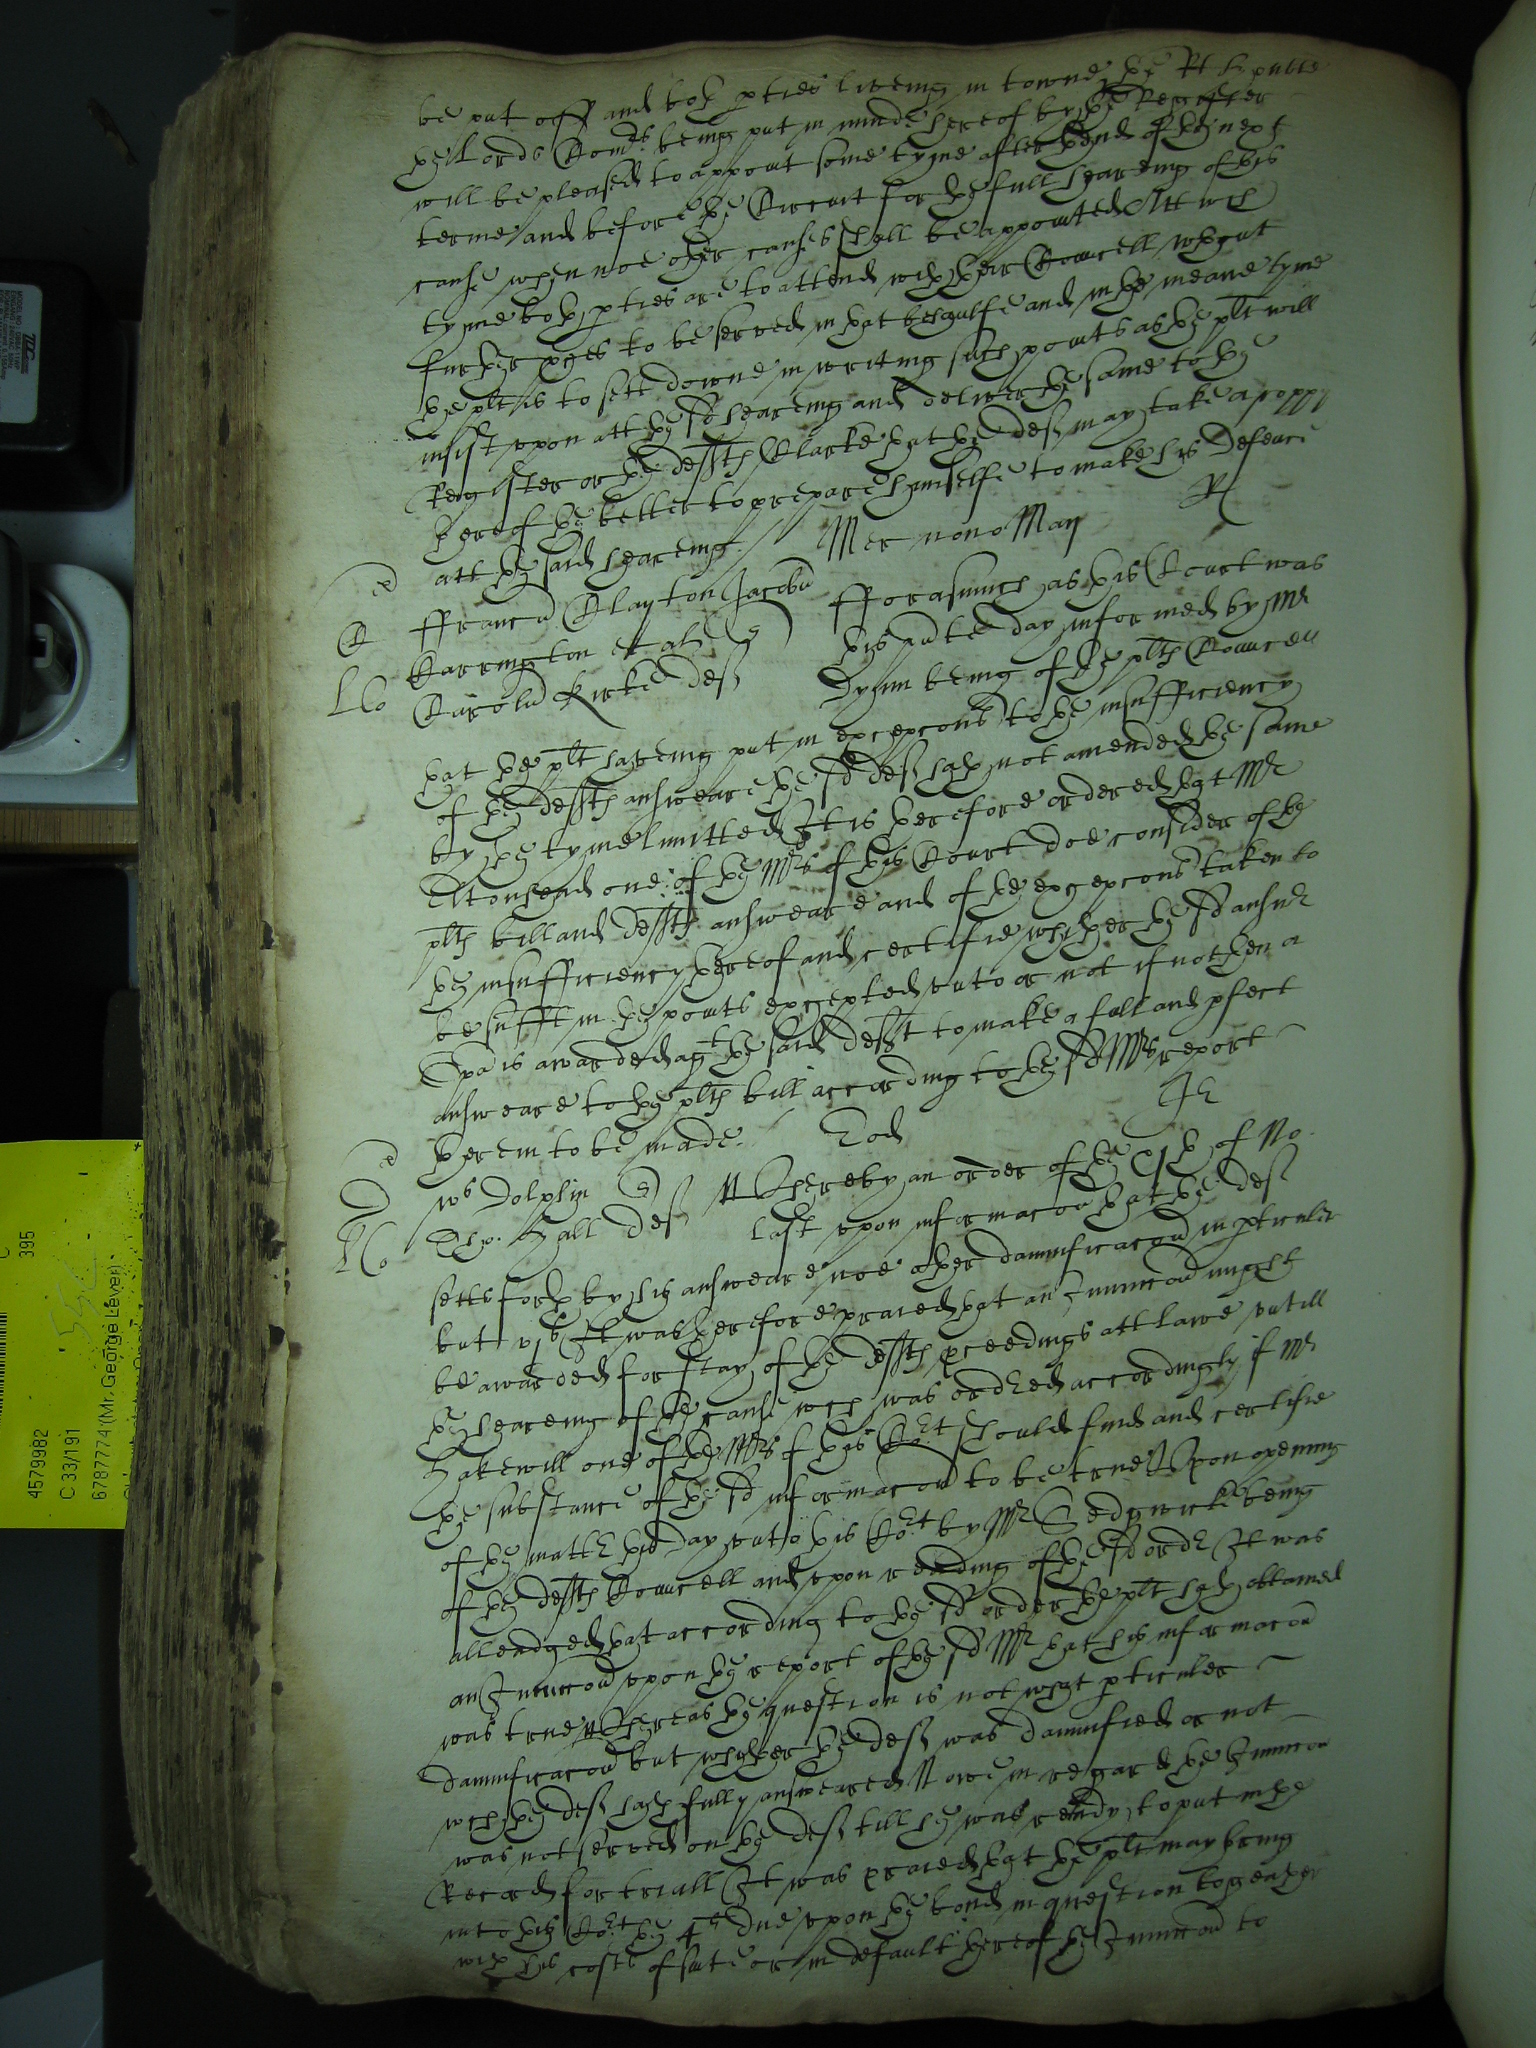 be put off and both pties liveing in towne the Rt hoble
the Lords Comrs being put in minde hereof by the Register
will be pleased to appoint some tyme after thend of the next
terme and before the Circuit for the full heareing of this
cause when noe other causes shall be appointed Att wch
tyme both pties are to attend with their Councell wthout
further pces to be served in that behaulfe and in the meane tyme
the plt is to sett downe in writing such points as the plt will
insist upon att the sd heareing and deliver the same to the
Register or the defts Clarke that the deft may take a coppy
thereof the better to prepare himselfe to make his defence
att the said heareing
Mer nono Maij
R
ffrancus Clayton Jacobus
Carrington et al
Carolus Kirke deft
fforasmuch as this Court was
this pnte day informed by Mr
being of the plts Councell
that the plt haveing put in excepcons to the insufficiency
of the defts answeare the sd deft hath not amended the same
by the tyme limitted It is therefore ordered that Mr
one of the Mrs of this Court doe consider of the
plts bill and defts answeare and of the excepcons taken to
the insufficiency thereof and certifie whether the sd answr
be sufft in the points excepted unto or not if not then a
Spa is awarded agt the said deft to make a full and pfect
answeare to the plts bill according to the sd Mrs report
therein to be made.
Eod
D
Lo
Wm Dolphin
Hall deft
Whereby an order of the of No
last upon informacon that the deft
setts forth by his answeare noe other damnificacon in pticuler
but It was therefore praied that an Iniunccon might
be awarded for stay of the defts pceedings att lawe untill
the heareing of the cause wch was ordred accordingly if Mr
Hakewill one of the Mrs of this Cort should find and certifie
the substance of the sd informacon to be true Upon opening
of the mattr this day unto this Cort by Mr Sedgwicke being
of the defts Councell and upon reading of the sd ordr It was
alleadged that according to the sd order the plt hath obtained
an Iniunccon upon the report of the sd Mr that his informacon
was true Whereas the question is not what pticuler
damnificacon but whether the deft was damnified or not
wch the deft hath fully answeared Nowe in regard the Iniunccon
was not served on the deft till he was ready to put in the
Record for triall It was praied that the plt may bring
into this Cort the due upon the bond in question together
with his costs of suite or in default thereof the Iniunccon to
4579982
C 33/191
(Mr. George Lever)
395